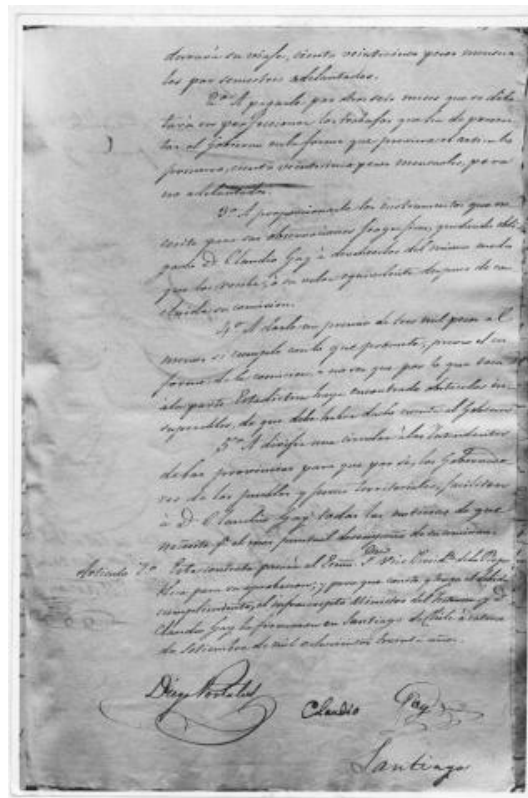 durará su viaje, ciento veinticinco pesos mensua
les por semestres adelantados.
2º A pagarle por otros seis meses que se dila
tará en perfeccionar los trabajos que ha de presen
tar al Gobierno en la forma que previene el artículo
primero, ciento veinticinco pesos mensuales, pero
no adelantados.
3º A proporcionarle los instrumentos que ne
cesita para sus observaciones geográficas, quedando obli
gado Dn. Claudio Gay à devolverlos del mismo modo
que los recibe, o su valor equivalente despues de con
cluida su comision.
4º A darle un premio de tres mil pesos a lo
menos si cumple con lo que promete, previo el in
forme de la comision, a no ser que por lo que toca
á la parte Estadistica haya encontrado obstaculos in
superables, de que debe haber dado cuenta al Gobierno
5º A dirijir una circular á los Intendentes
de las provincias para que por si, los Gobernado
res de los pueblos y jueces territoriales, faciliten
à Dn. Claudio Gay todas las noticias de que
necesite pa. el mas puntual desempeño de su comision.
Articulo 7º Esta contrata pasará al Exmo. Sor. Vice Presid.te de la Repu
blica para su aprobacion; y para que conste y tenga el debido
cumplimiento, el infrascripto Ministro del Interior y Dn.
Claudio Gay la firmaron en Santiago de Chile à catorce
de Setiembre de mil ochocientos treinta años.
Diego Portales
Claudio Gay
Santiago